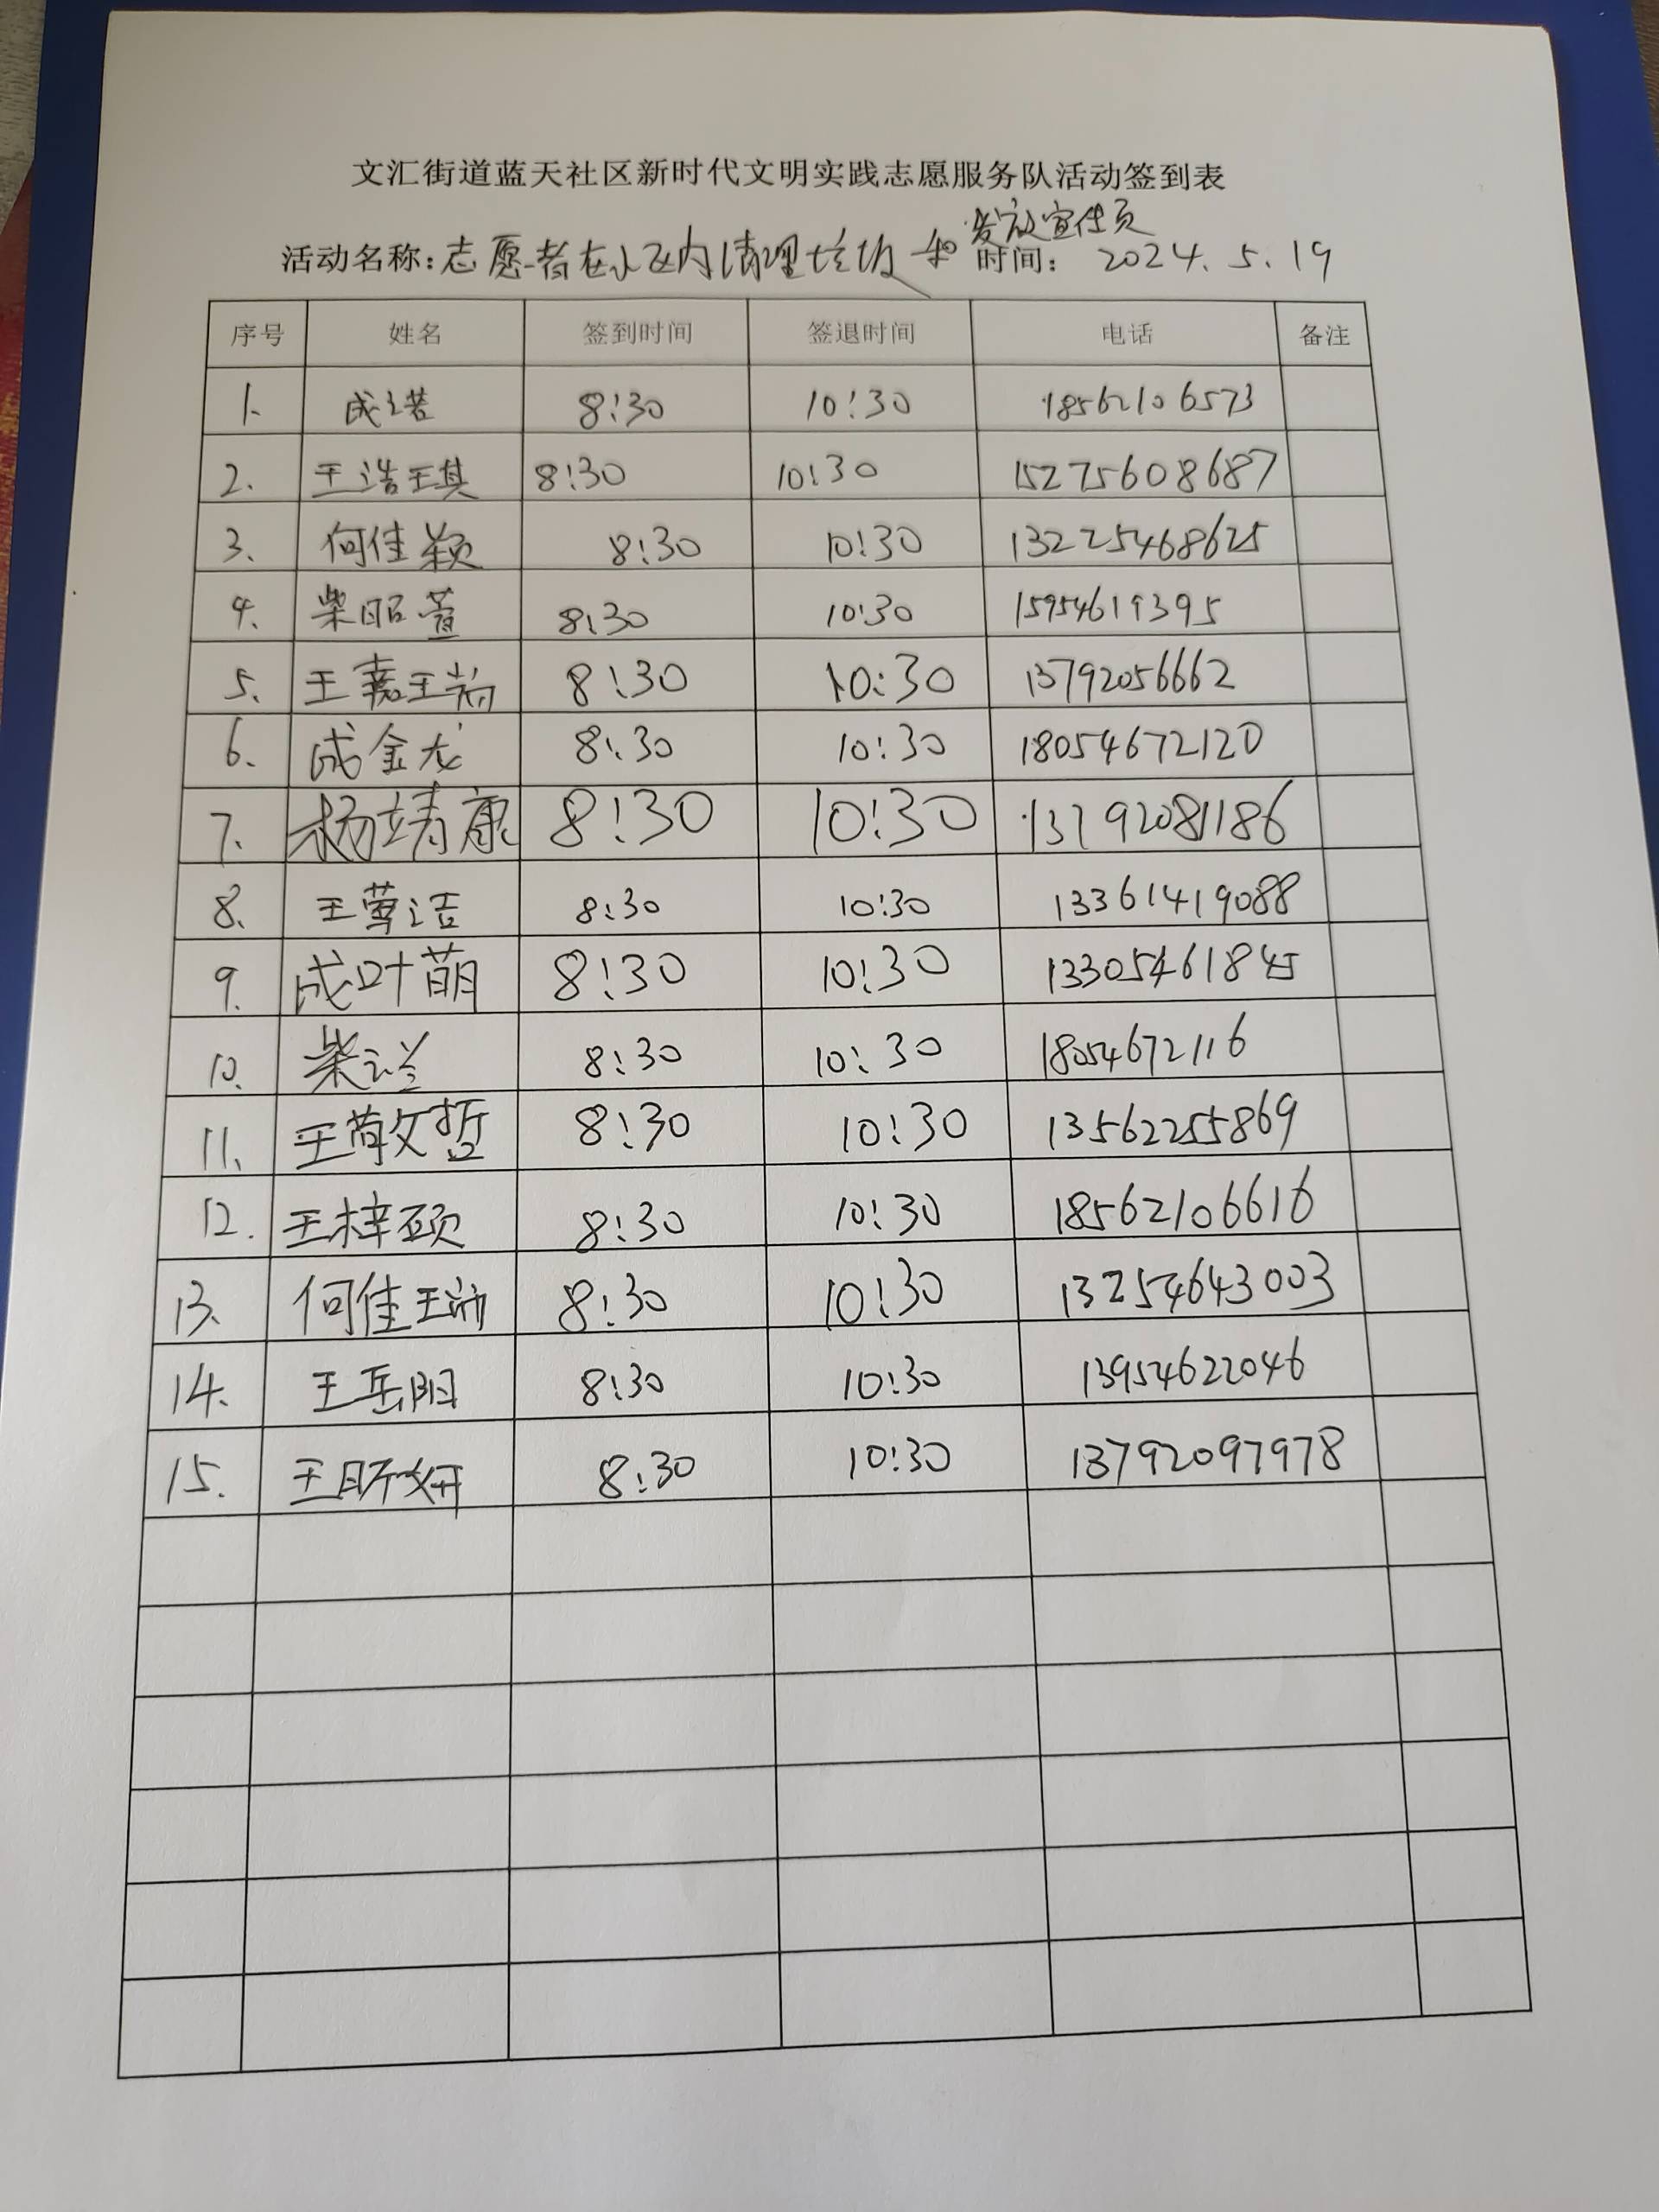 文汇街道蓝天社区新时代文明实践志愿服务队活动签到表
发放宣传页
活动名称:志愿者在小区内清理垃圾和 时间: 2024.5.19
序号 姓名 签到时间 签退时间 电话 备注
1. 成诺 8:30 10:30 18562106573
2. 王浩琪 8:30 10:30 15275608687
3. 何佳颖 8:30 10:30 13225468625
4. 柴昭萱 8:30 10:30 15954619395
5. 王嘉瑞 8:30 10:30 13792056662
6. 成金龙 8:30 10:30 18054672120
7. 杨靖康 8:30 10:30 13792081186
8. 8:30 10:30 13361419088
9. 成叶萌 8:30 10:30 13305461845
10. 8:30 10:30 18054672116
11. 8:30 10:30 13562255869
12. 王梓硕 8:30 10:30 18562106616
13. 8:30 10:30 13254643003
14. 王岳阳 8:30 10:30 13954622046
15. 王昕妍 8:30 10:30 13792097978